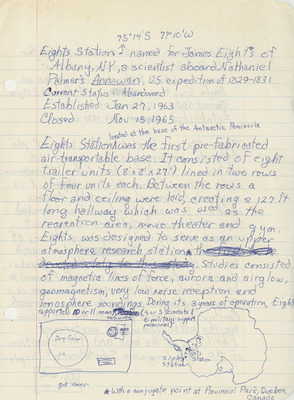 75°14'S 77°10'W
Eights Station, named for James Eights of
Albany, N.Y., a scientist aboard Nathaniel
Palmer's Annawan, U.S. expedition of 1829-1831
Current Status: Abandoned
Established Jan 27, 1963
Closed Nov 18, 1965
located at the base of the Antarctic Peninsula
Eights Station was the first pre-fabricated
air-transportable base. It consisted of eight
trailer units (8'x8'x27') lined in two rows
of four units each. Between the rows a
floor and ceiling were laid, creating a 127 ft
long hallway which was used as the
recreation area, movie theater and gym.
Eights was designed to serve as an upper
atmosphere research station
Studies consisted
of magnetic lines of force, aurora and airglow,
geomagnetism, very low noise reception and
ionosphere soundings. During its 3 years of operation, Eights
supported 10 or 11 men (4 or 5 scientists &
6 military support
personnel)
Eights
Station
*With a conjugate point at Provincial Park, Quebec,
Canada